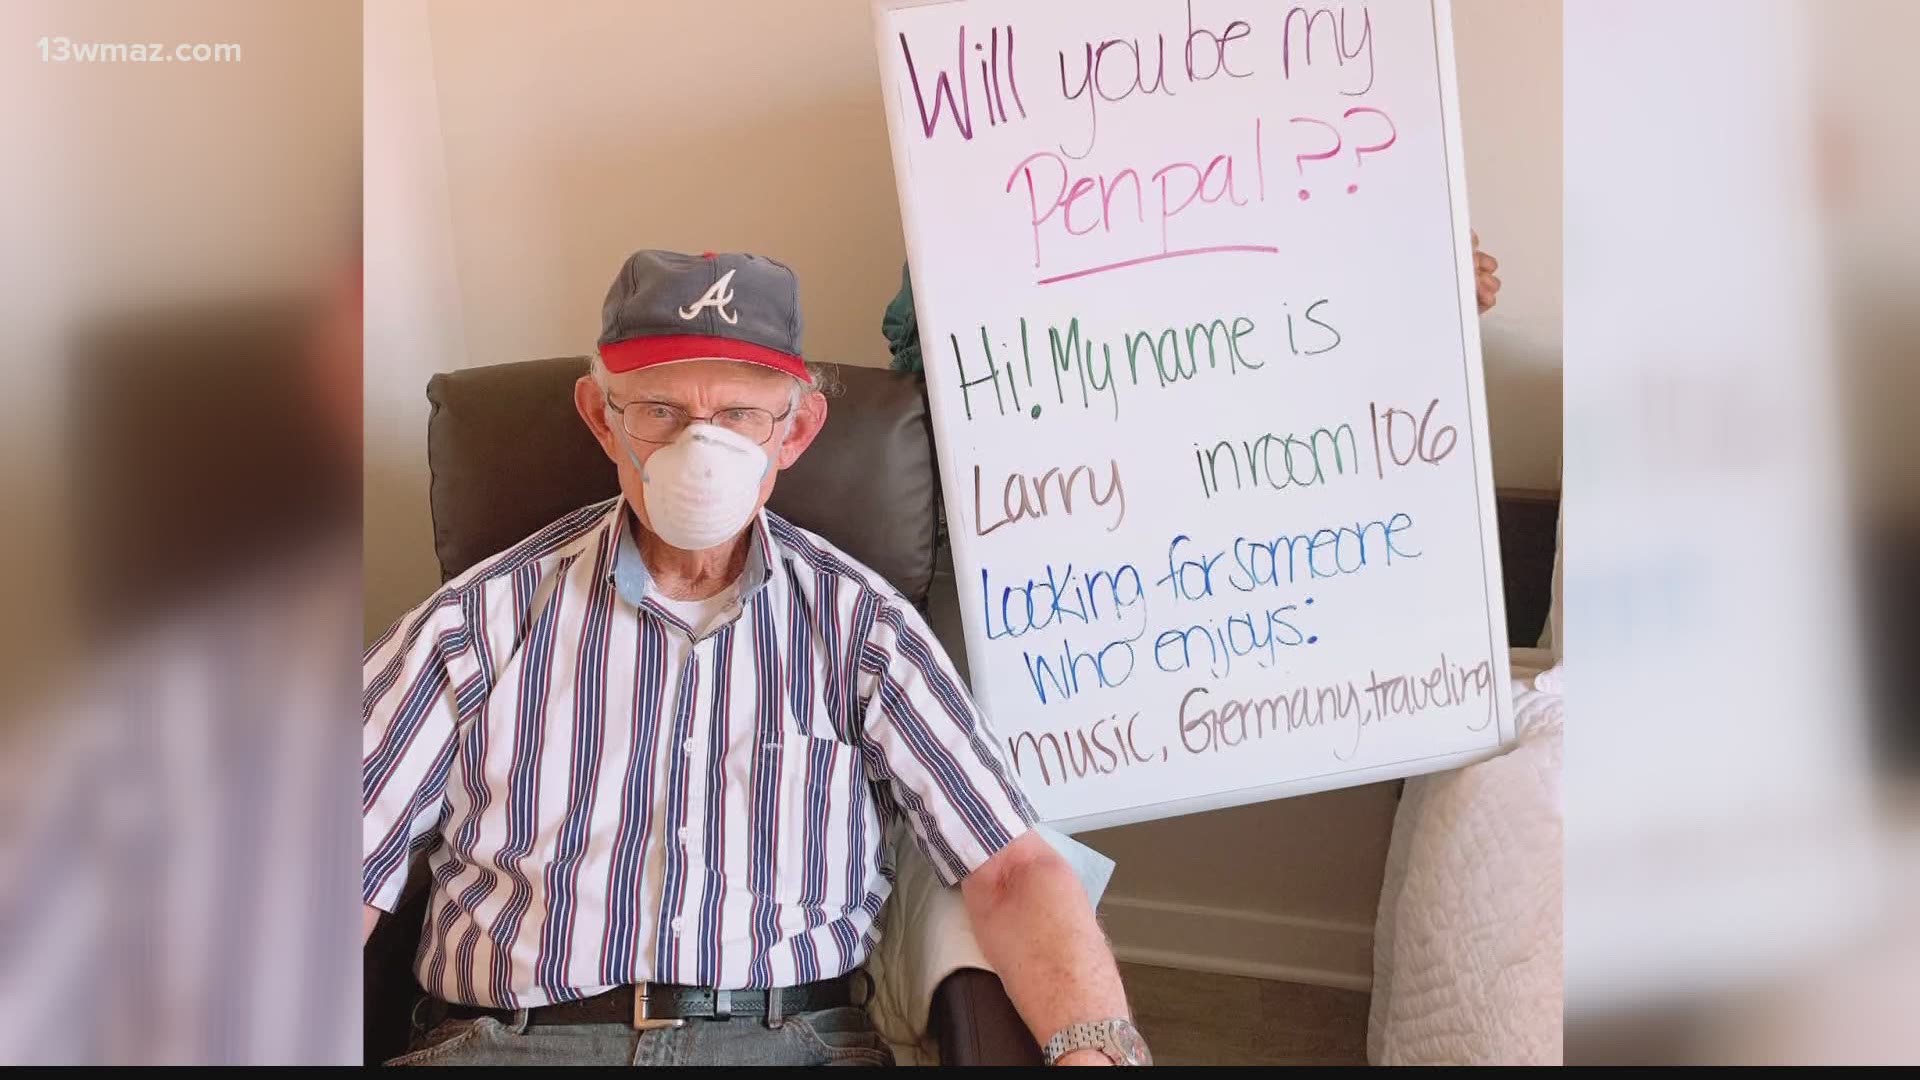 13wmaz.com
Will you be my
Penpal??
A
Hi! My name is
Larry in room 106
Looking for someone
who enjoys:
music, Germany, traveling